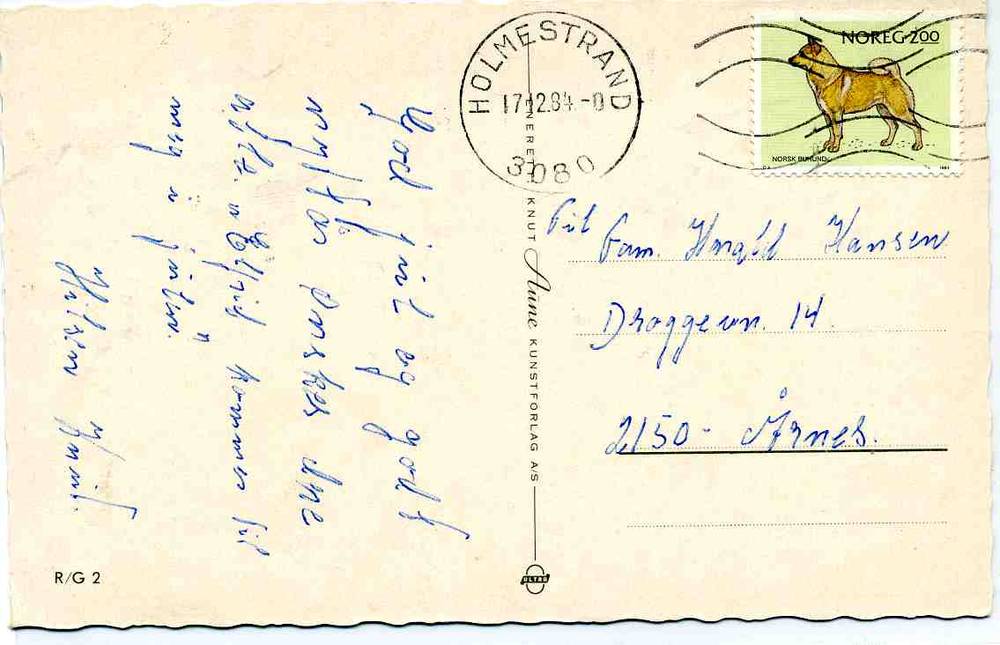 God jul og godt
nyttår ønskes dere
kommer til
meg i julen.
Hilsen
HOLMESTRAND
17.12.84.-0
3080
NOREG 200
NORSK BUHUND
ENERET KNUT Aune KUNSTFORLAG A/S
Til Fam. Harald Hansen
Draggevn. 14.
2150 - Årnes.
R/G 2
ULTRA